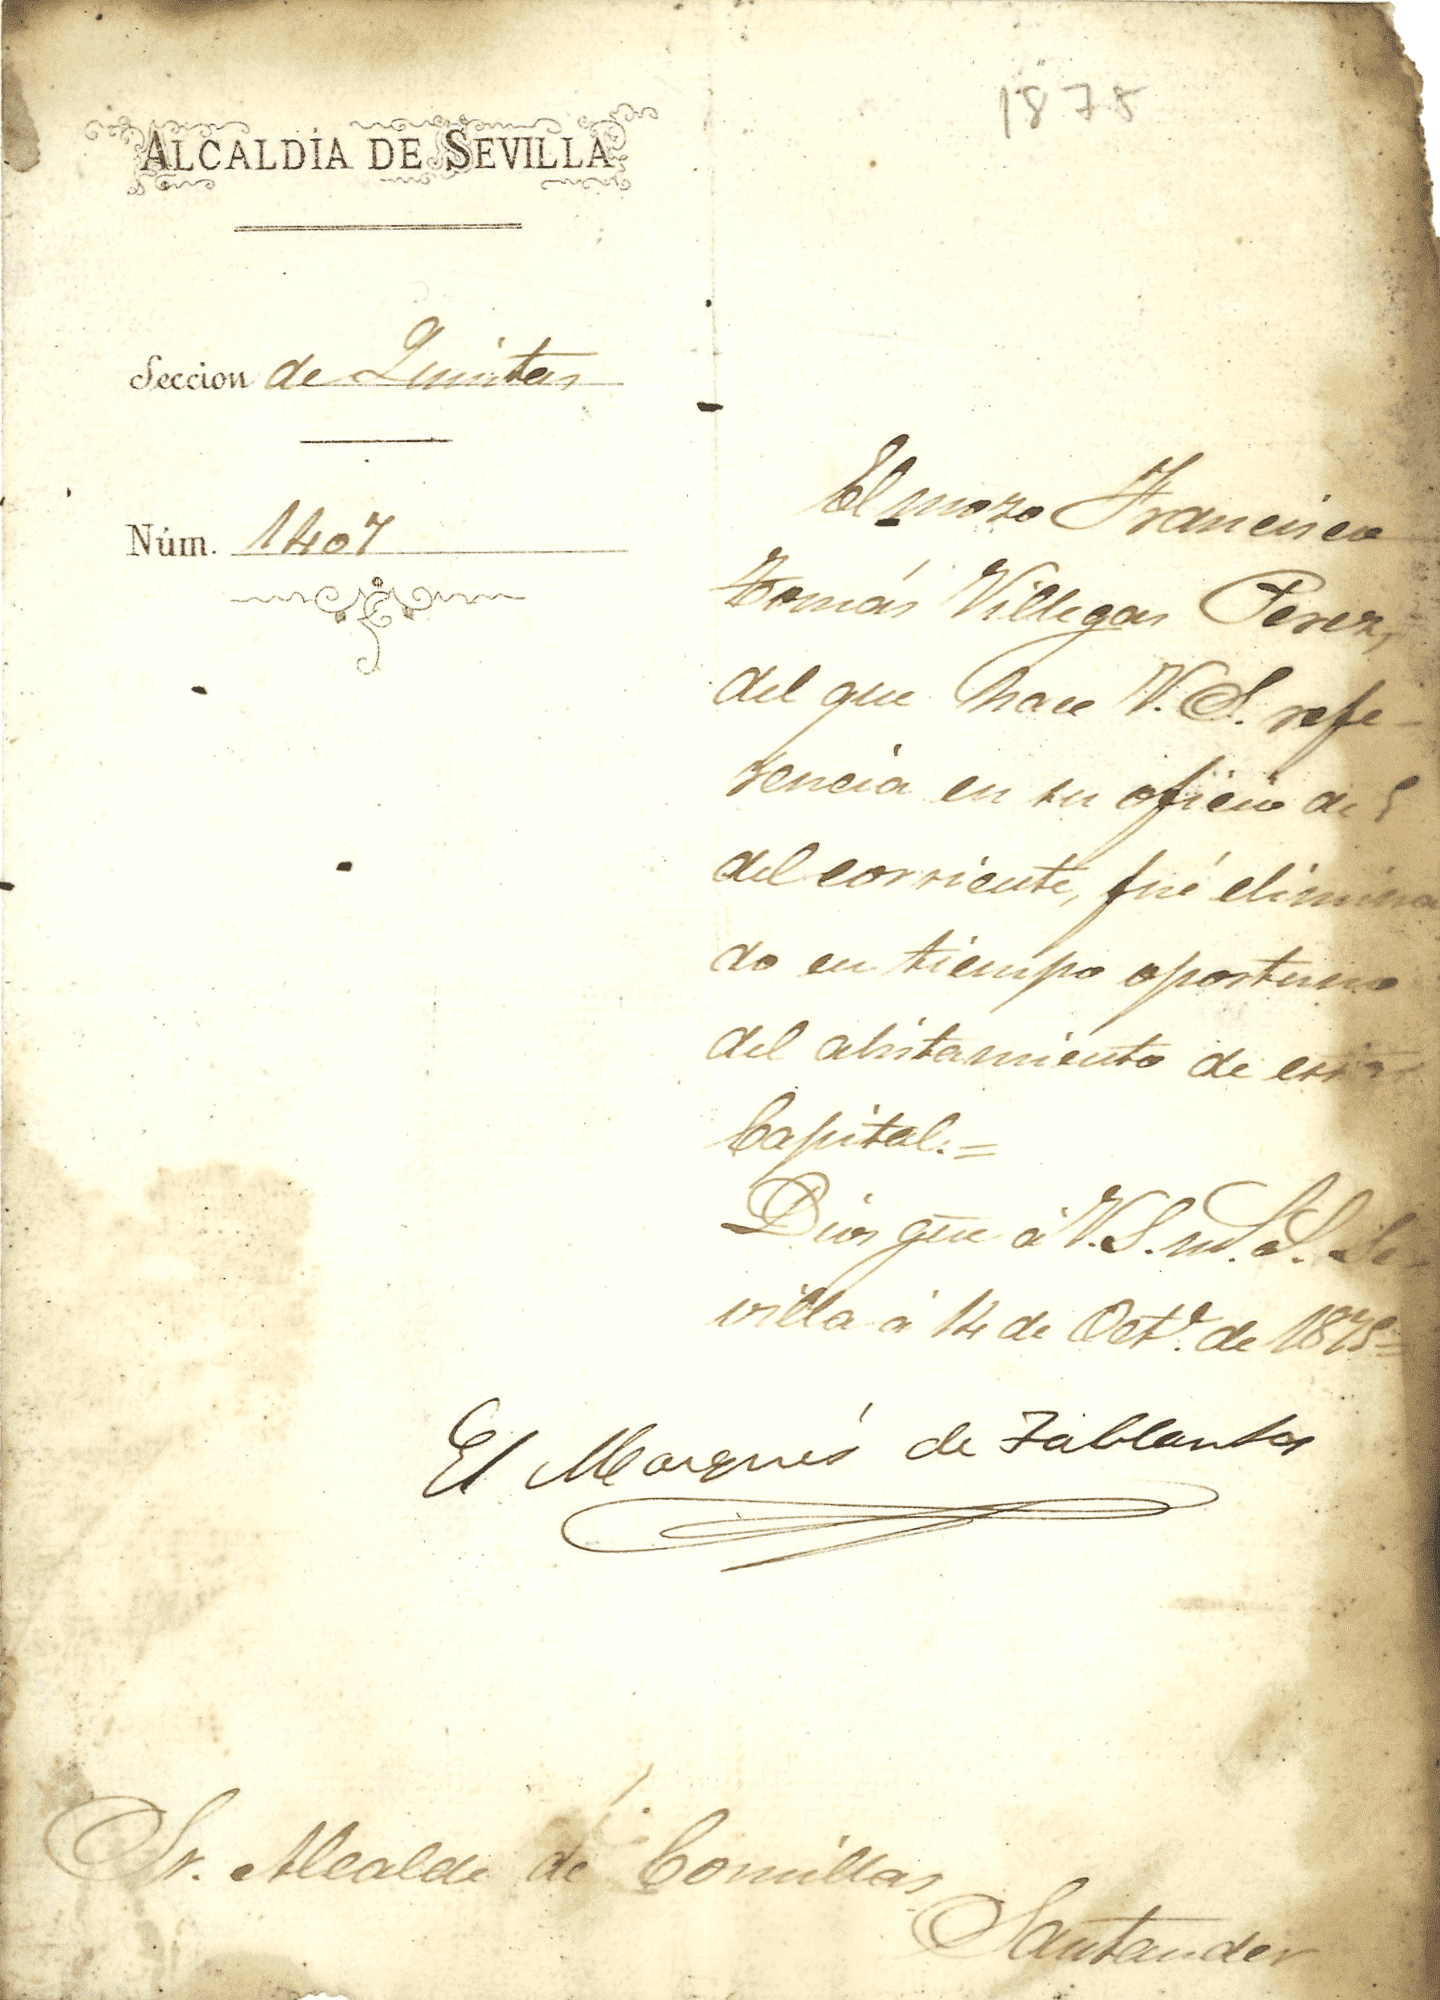 1875
ALCALDÍA DE SEVILLA
Seccion de Quintas
Núm. 1407
El mozo Francisco
Tomás Villegas Perez,
del que hace V. S. refe-
rencia en su oficio de 5
del corriente, fué elimina
do en tiempo oportuno
del alistamiento de esta
Capital.=
Dios gue á V. S. m. a. Se-
villa á 14 de Octe. de 1875=
El Marqués de Tablantes
Sr. Alcalde de Comillas
Santander